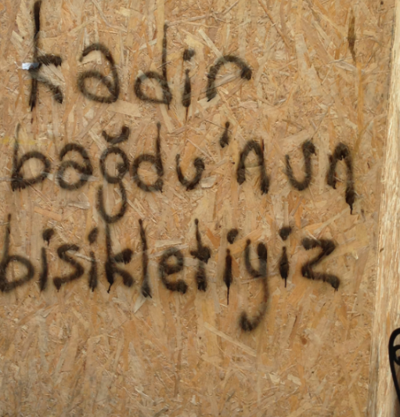 kadir
bağdu'nun
bisikletiyiz